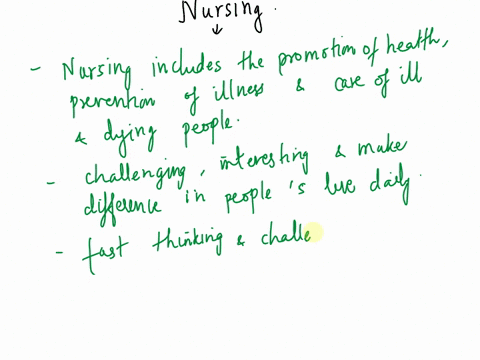 Nursing.
↓
- Nursing includes the promotion of health,
prevention of illness & care of ill
& dying people.
- challenging, interesting & make
difference in people's live daily.
- fast thinking & challe